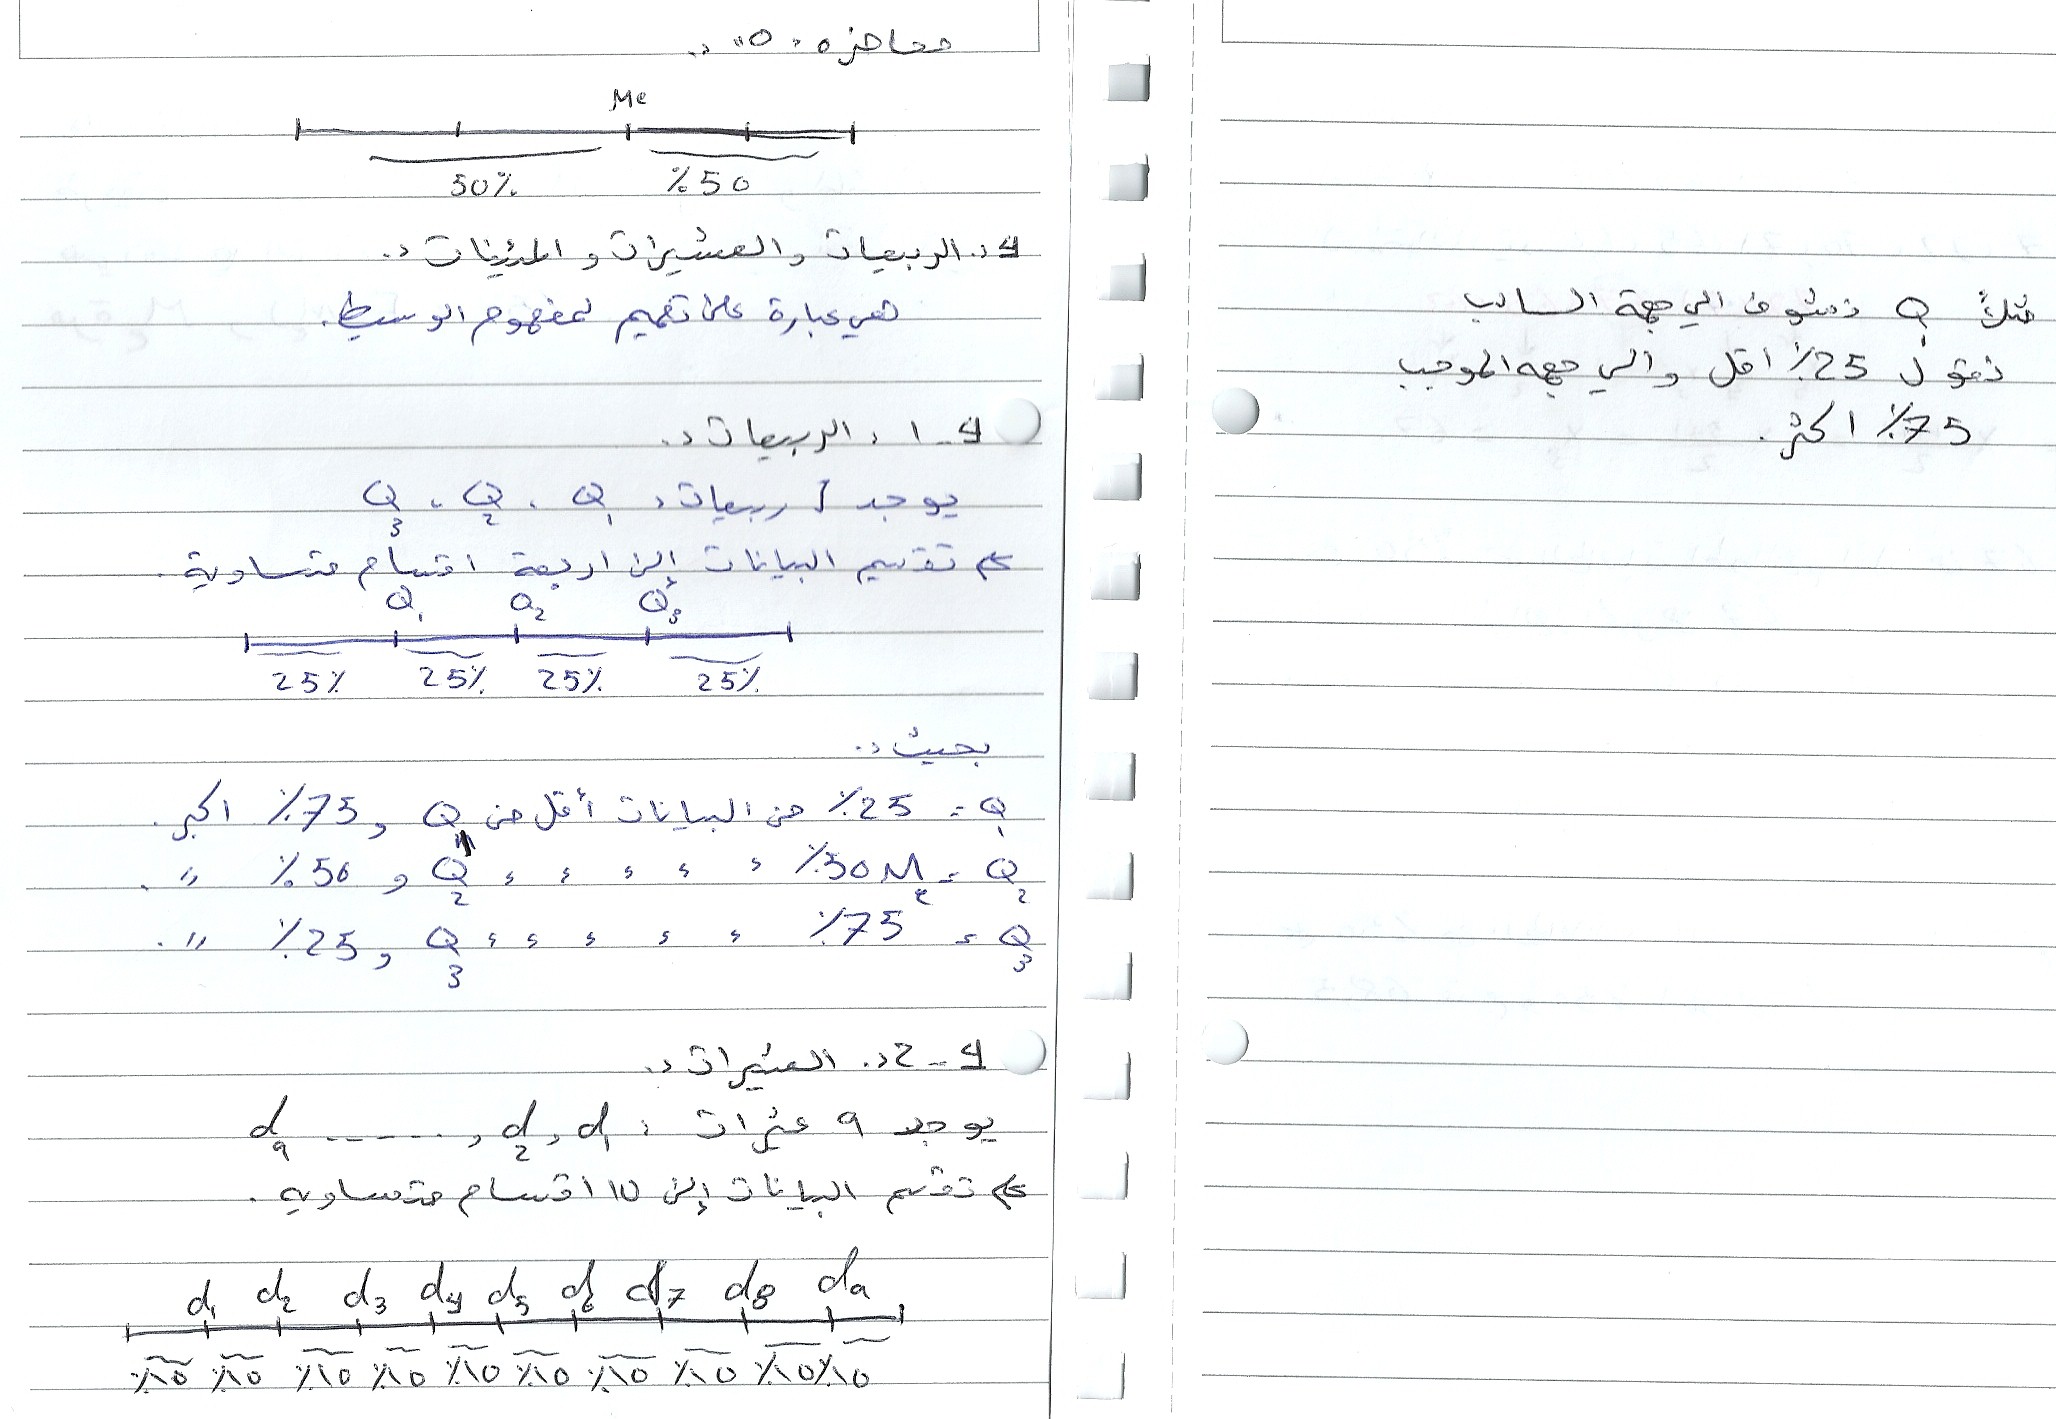 محاضره "٥" :.
Me
50% %50
4:. الربيعات والعشيرات والمئينات :.
هي عبارة على تعميم لمفهوم الوسيط.
4-1: الربيعات :.
يوجد ربيعات: Q1 , Q2 , Q3
تقسيم البيانات إلى اربعة اقسام متساوية.
Q1 Q2 Q3
25% 25% 25% 25%
بحيث :.
Q1 = 25% من البيانات أقل من Q1 و 75% اكبر.
Q2 = Me 50% ء ء ء ء ء Q2 و 50% ".
Q3 = 75% ء ء ء ء ء ء Q3 و 25% ".
4-2:. العشيرات :.
يوجد 9 عشيرات : d1, d2, ------ d9
تقسم البيانات إلى 10 اقسام متساويه.
d1 d2 d3 d4 d5 d6 d7 d8 d9
%10 %10 %10 %10 %10 %10 %10 %10 %10 %10
مثلاً Q1 نشوف الي جهة السالب
نقول 25% اقل والي جهه الموجب
75% اكثر.